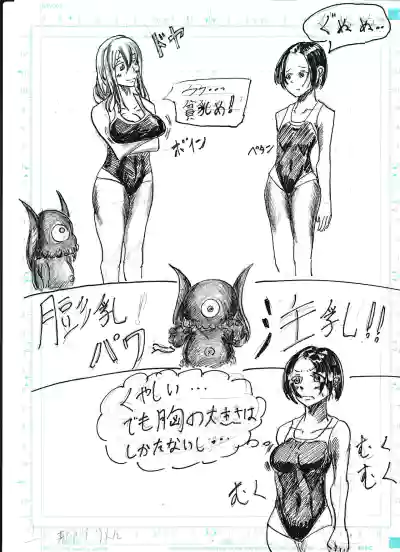 ぐぬぬ…
ドヤ
ウフ…
貧乳め!
ボイン
ペタン
膨乳!
パワ〜
注乳!!
くやしい…
でも胸の大きさは
しかたないし…
むく
むく
むく